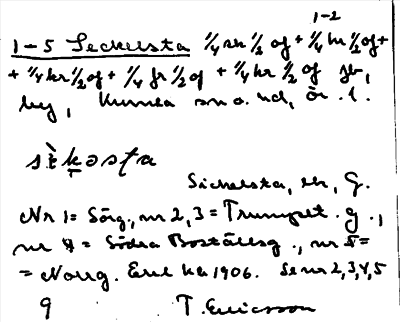 1-2
1-5 Seckelsta 1/4 sk 1/2 of + 1/4 kr 1/2 of +
+ 1/4 kr 1/2 of + 1/4 fr 1/2 of + 1/4 kr 1/2 of
by, Kumla sn o. hd, Ör. l.
sèkosta
Sickelsta, G.
Nr 1 = Sörg., nr 2, 3 = Trumpet. g.,
nr 4 = Södra Boställsg., nr 5 =
= Norrg. Enl kb 1906. Se nr 2,3,4,5
9 T. Ericsson